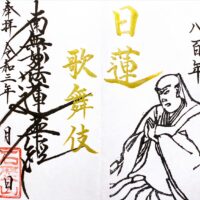 八百年
日蓮
歌舞伎
南無妙法蓮華経
奉拝 令和三年 月 日